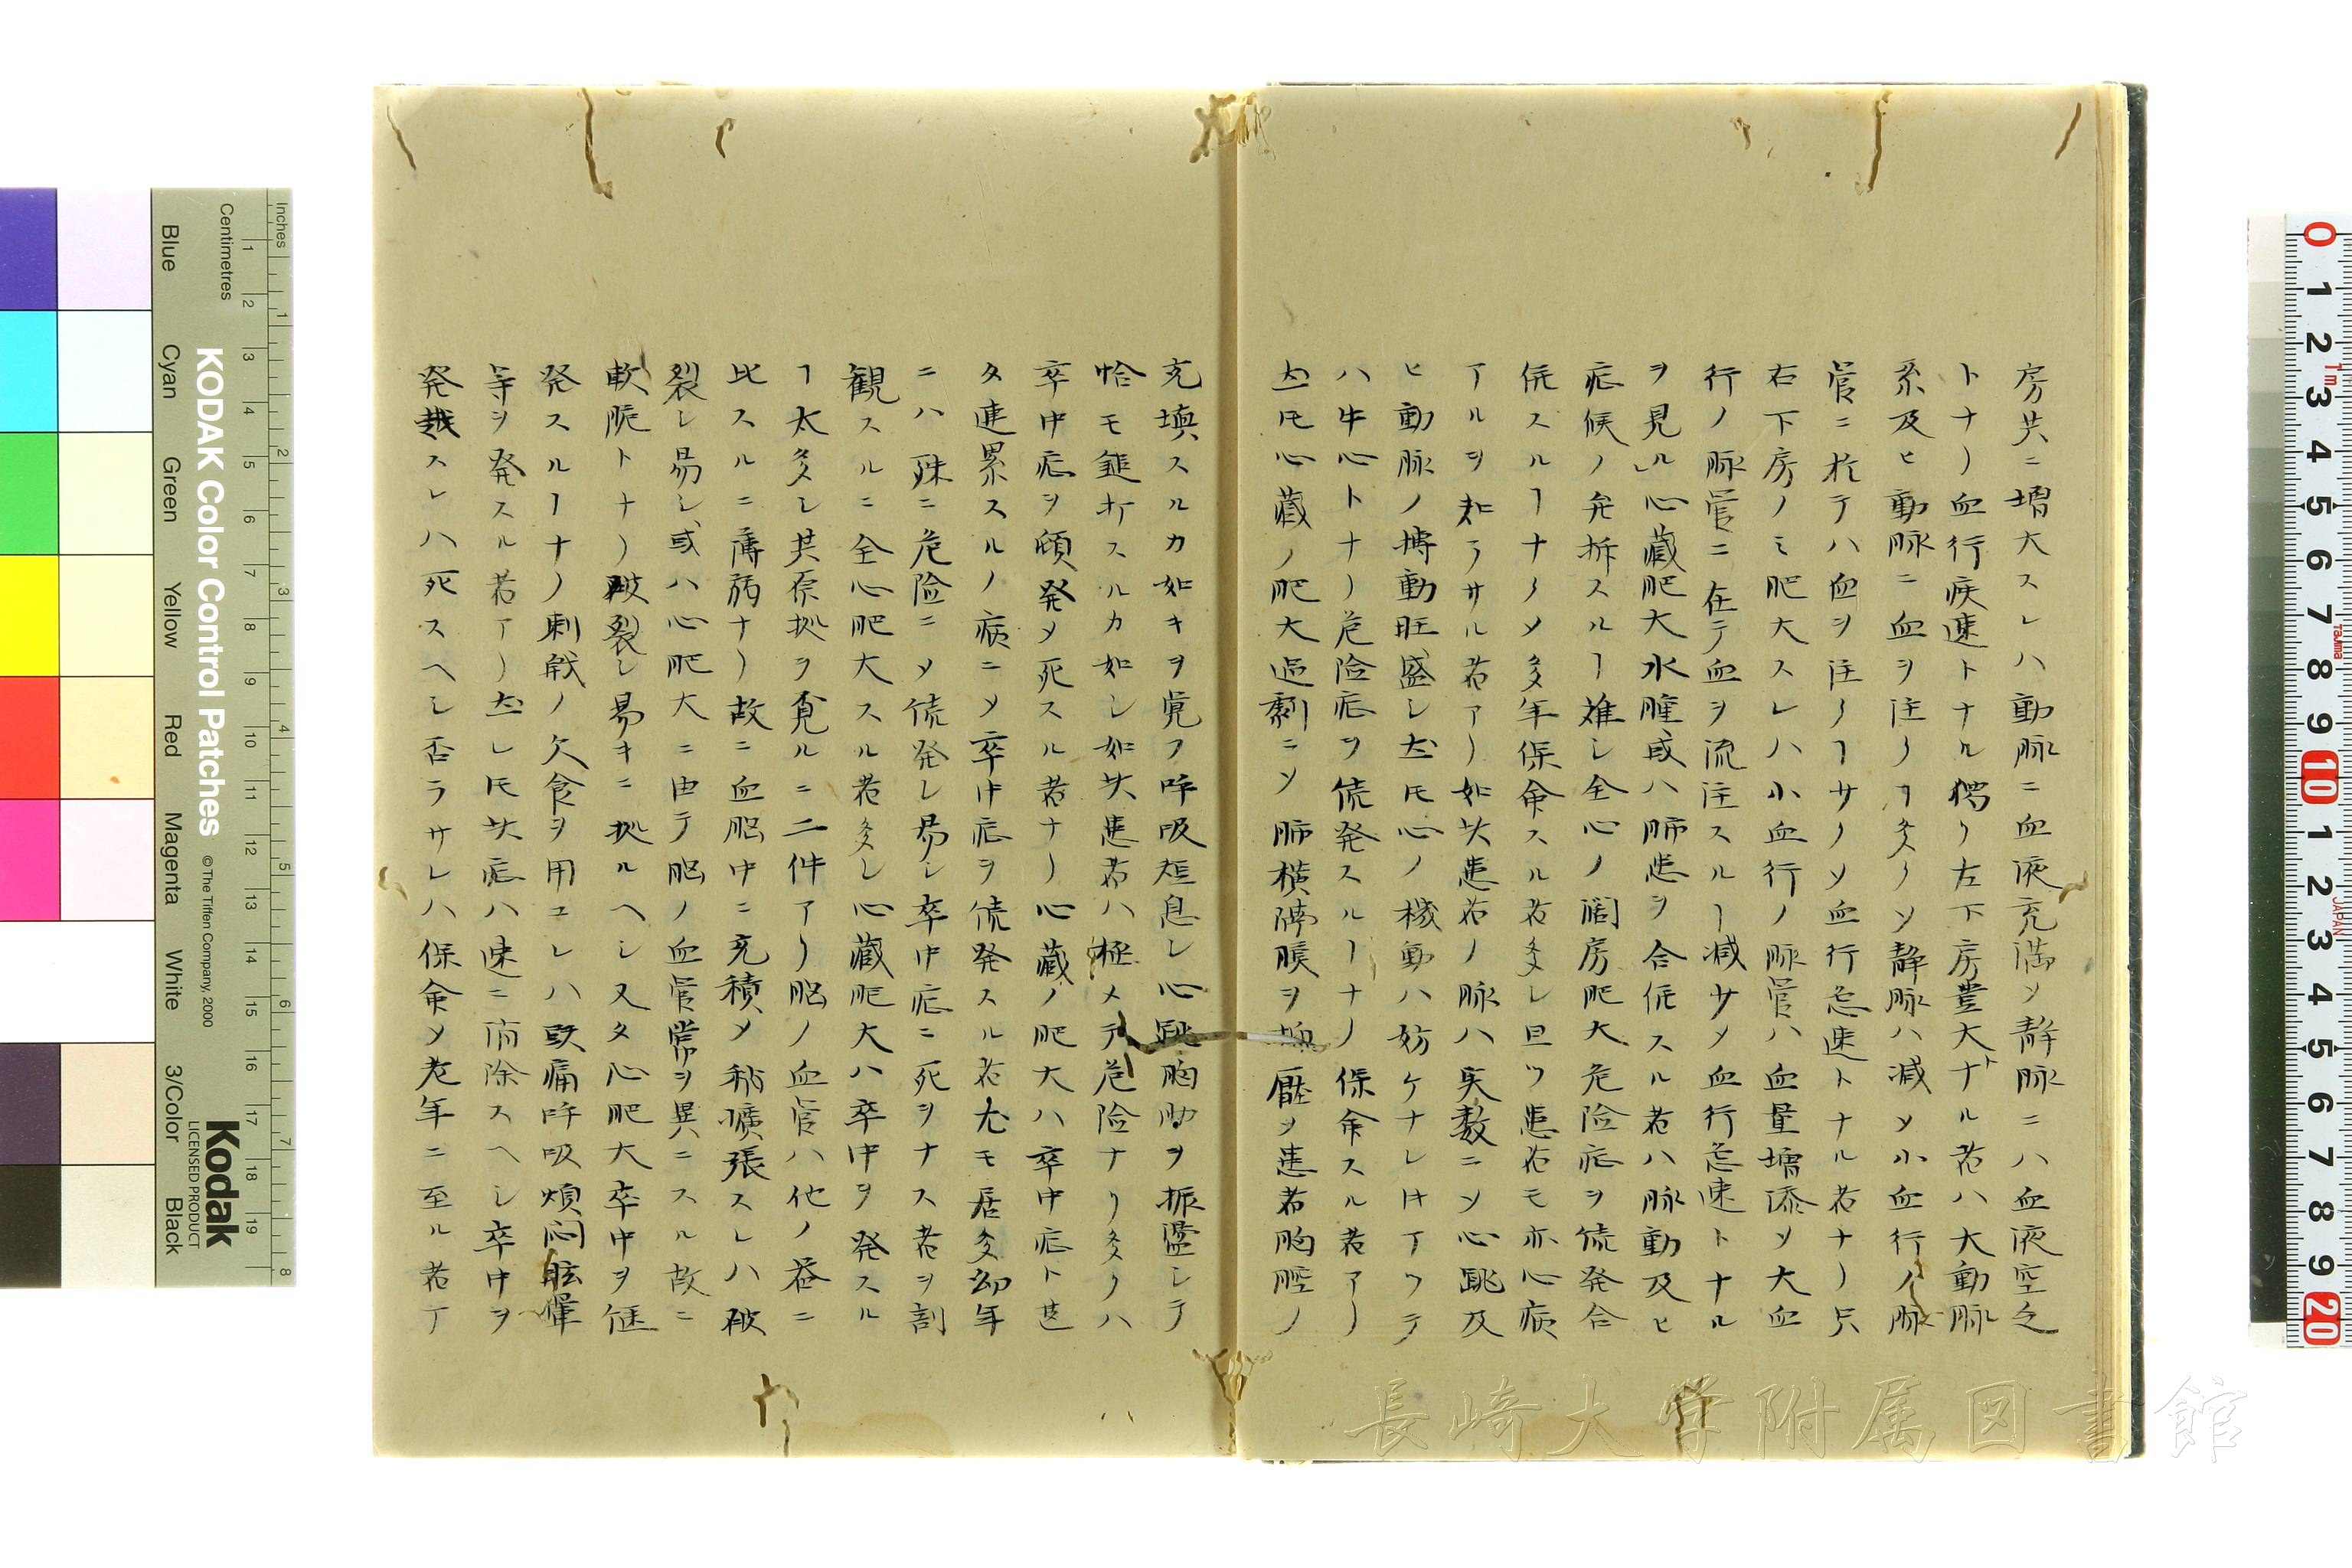 房共ニ増大スレハ動脉ニ血液充満ソ静脉ニハ血液空乏
トナリ血行疾速トナル獨リ左下房豊大ナル者ハ大動脉
系及ヒ動脉ニ血ヲ注クヿ多クソ静脉ハ減ソ小血行ノ脉
管ニ於テハ血ヲ注クヿ少クソ血行怠速トナル者ナリ只
右下房ノミ肥大スレハ小血行ノ脉管ハ血量増添ソ大血
行ノ脉管ニ在テ血ヲ流注スルヿ減少メ血行怠速トナル
ヲ見ル心藏肥大水腫或ハ肺患ヲ合併スル者ハ脉動及ヒ
症候ノ弁拆スルヿ難シ全心ノ闊房肥大危険症ヲ続発合
併スルヿナクメ多年保命スル者多シ且ツ患者モ亦心病
アルヲ知ラサル者アリ如此患者ノ脉ハ実数ニソ心跳及
ヒ動脉ノ搏動旺盛シ𪜈心ノ機動ハ妨ケナレ𪜈アツテ
ハ牛心トナリ危険症ヲ続発スルヿナク保命スル者アリ
𪜈心藏ノ肥大過劇ニソ肺横隔膜ヲ壓ソ患者胸腔ノ
充填スルカ如キヲ覚フ呼吸短息シ心跳胸肋ヲ振盪シテ
恰モ鎚打スルカ如シ如此患者ハ極メテ危険ナリ多クハ
卒中症ヲ頓発メ死スル者ナリ心藏ノ肥大ハ卒中症ト甚
タ連累スルノ病ニソ卒中症ヲ続発スル者尤モ居多幼年
ニハ殊ニ危険ニメ続発シ易シ卒中症ニ死ヲナス者ヲ割
観スルニ全心肥大スル者多シ心藏肥大ハ卒中ヲ発スル
ヿ太多シ其原拠ヲ覔ルニ二件アリ脳ノ血管ハ他ノ器ニ
比スルニ薄弱ナリ故ニ血脳中ニ充積メ努擴張スレハ破
裂シ易シ或ハ心肥大ニ由テ脳ノ血管常ヲ異ニスル故ニ
軟脆トナリ破裂シ易キニ拠ルヘシ又タ心肥大卒中ヲ
発スルヿナク刺戟ノ欠食ヲ用ユレハ頭痛呼吸煩悶眩暈
等ヲ発スル者アリ𪜈此症ハ速ニ消除スヘシ卒中ヲ
発越スレハ死スヘシ否ラサレハ保命メ老年ニ至ル者ア
Inches
Centimetres
KODAK Color Control Patches
© The Tiffen Company, 2000
Kodak
LICENSED PRODUCT
Blue
Cyan
Green
Yellow
Red
Magenta
White
3/Color
Black
長崎大学附属図書館